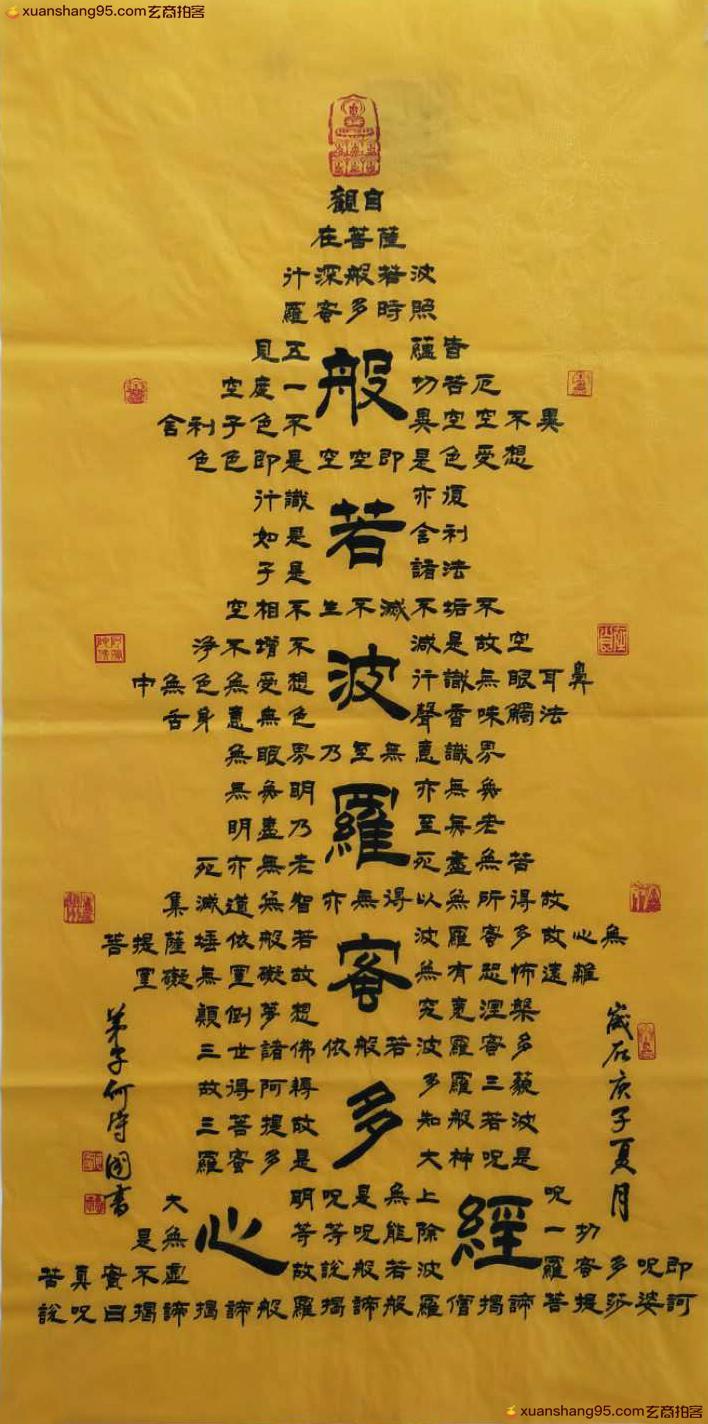 xuanshang95.com玄商拍客
觀自
在菩薩
行深般若波
羅蜜多時照
見五蘊皆
空度一切苦厄
舍利子色不異空空不異
色色即是空空即是色受想
行識亦復
如是舍利
子是諸法
空相不生不滅不垢不
淨不增不減是故空
中無色無受想行識無眼耳鼻
舌身意無色聲香味觸法
無眼界乃至無意識界
無無明亦無無
明盡乃至無老
死亦無老死盡無苦
集滅道無智亦無得以無所得故
菩提薩埵依般若波羅蜜多故心無
罣礙無罣礙故無有恐怖遠離
顛倒夢想究竟涅槃
三世諸佛依般若波羅蜜多
故得阿耨多羅三藐
三菩提故知般若波
羅蜜多是大神呪是
大明呪是無上呪
是無等等呪能除一切
苦真實不虛故說般若波羅蜜多呪即
說呪曰揭諦揭諦般羅揭諦般羅僧揭諦菩提莎婆訶
般若波羅蜜多心經
歲在庚子夏月
弟子何國書
xuanshang95.com玄商拍客